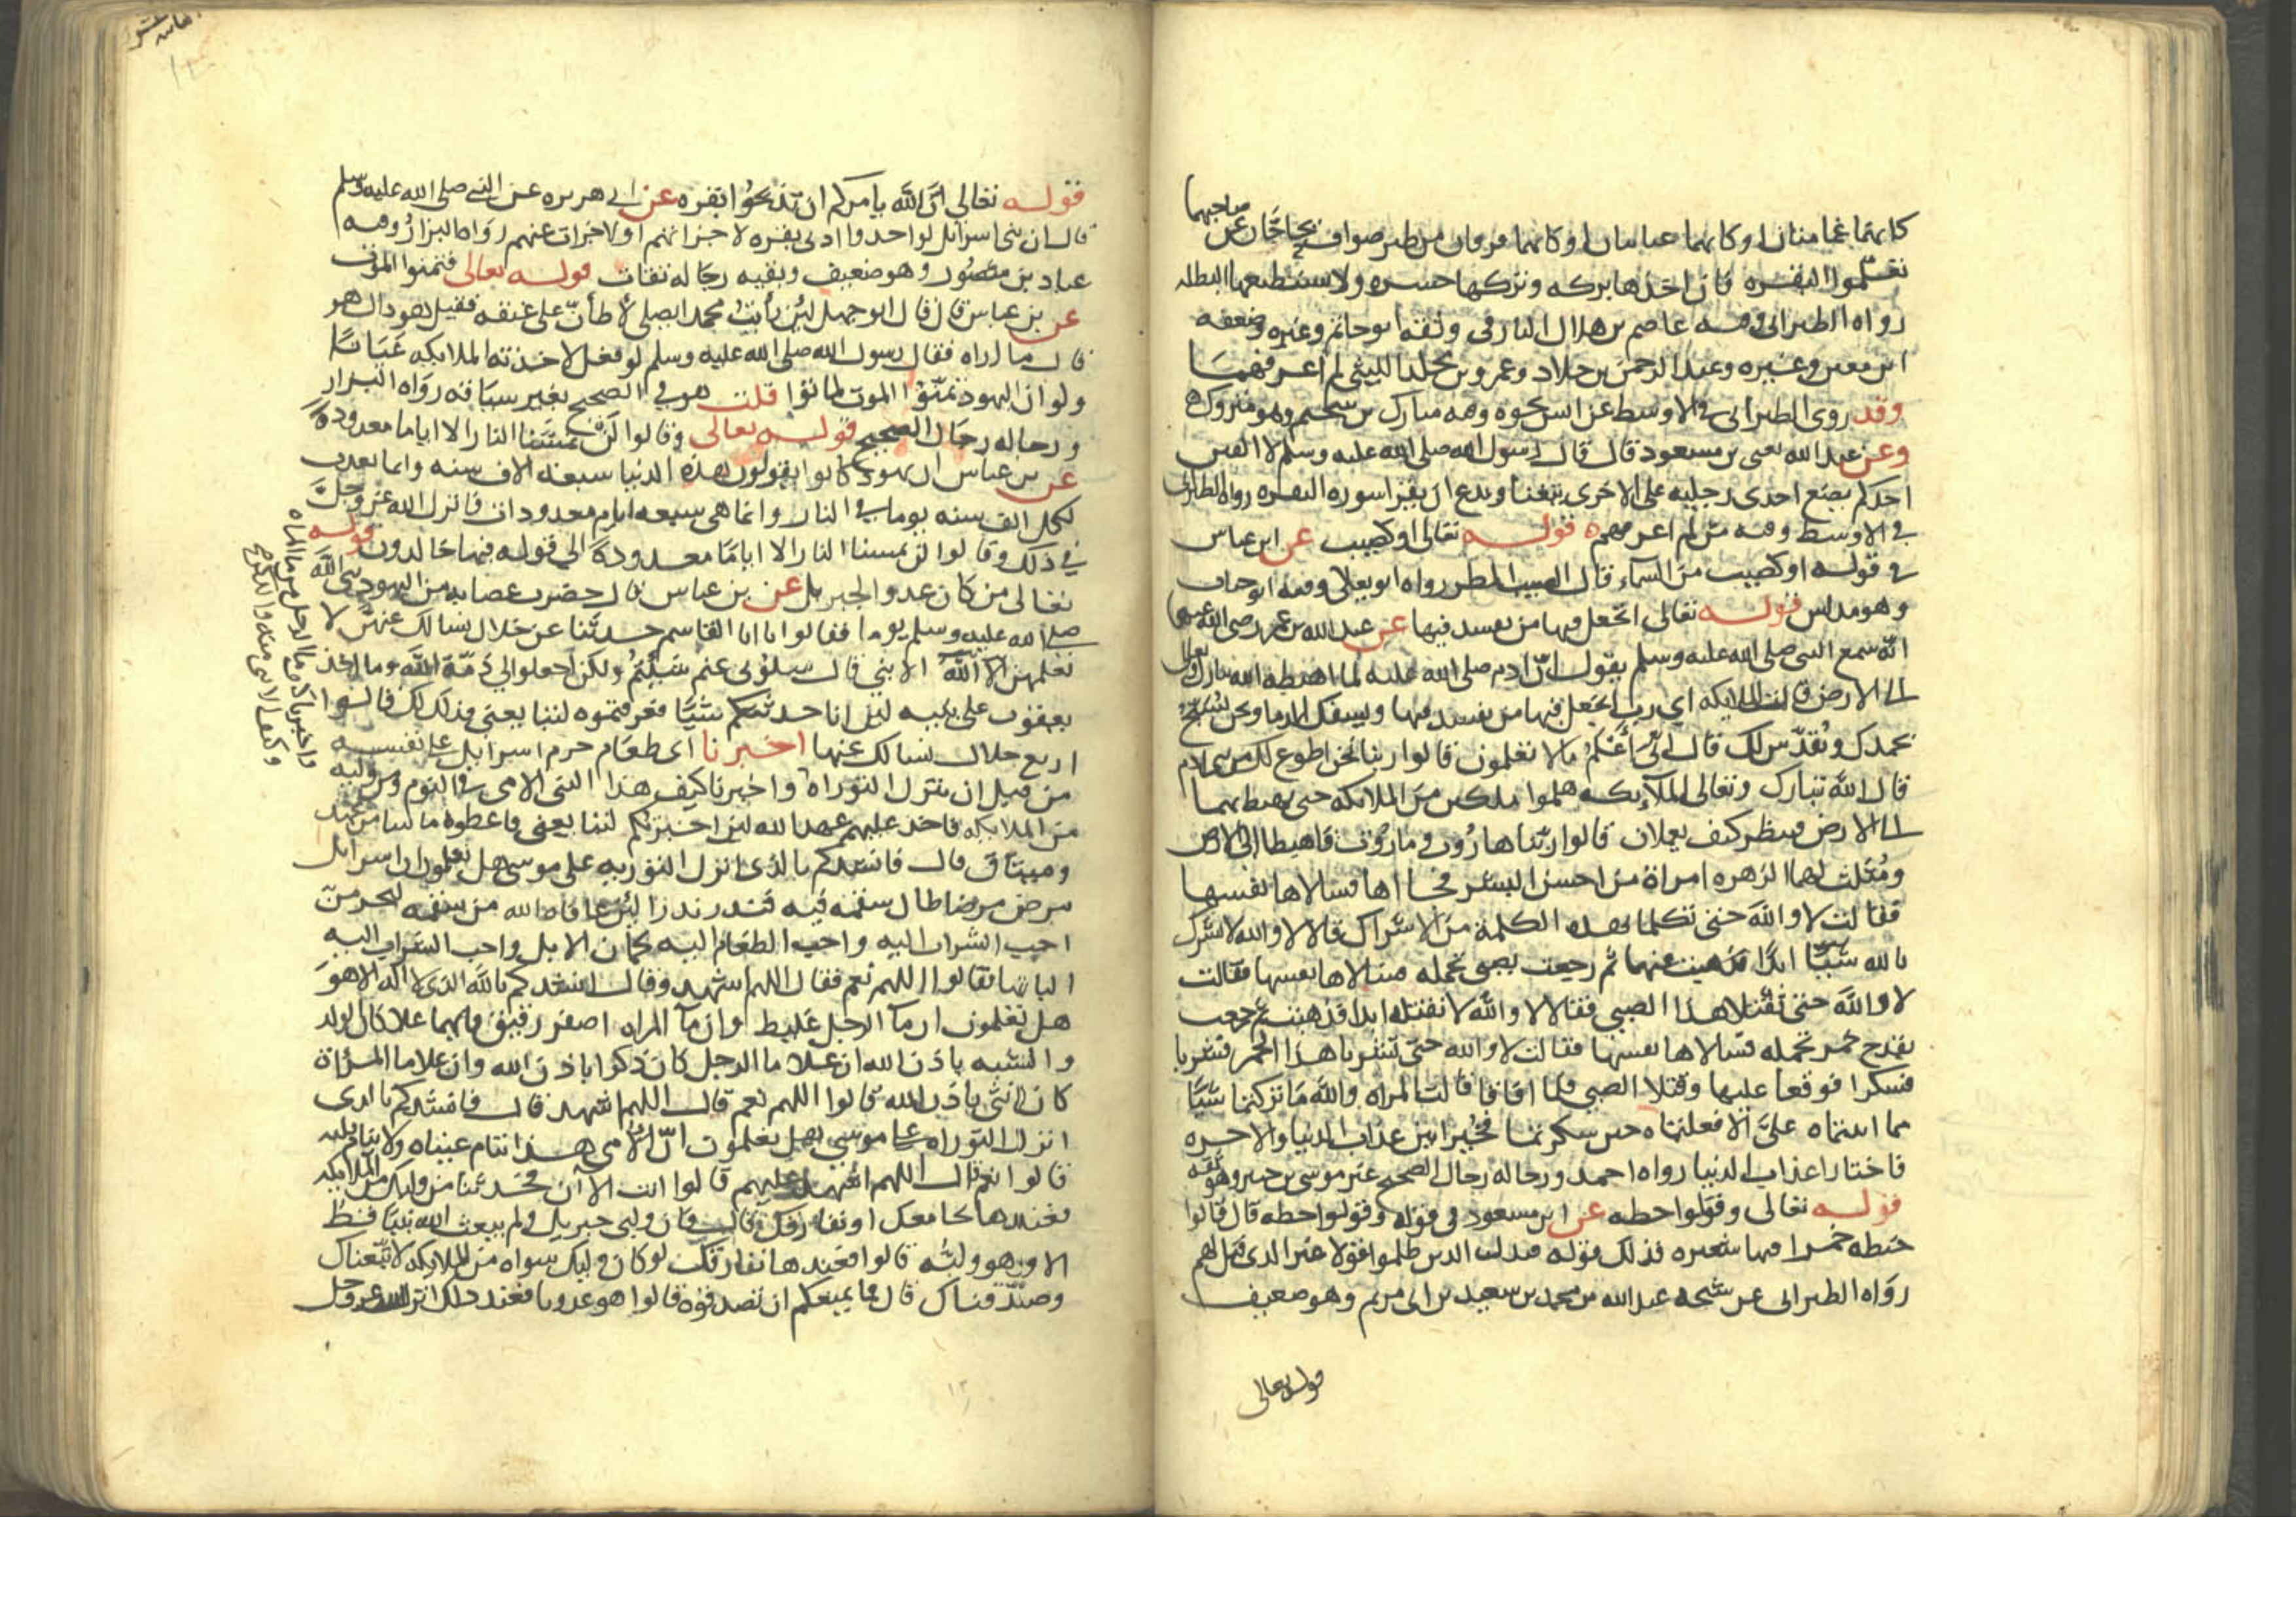 كانهما غمامتان او كانهما غيايتان او كانهما فرقان من طير صواف يحاجان عن صاحبهما
تعلموا البقره فان اخذها بركه وتركها حسره ولا يستطيعها البطله
رواه الطبراني وفيه عاصم بن هلال البارقي وثقه ابو حاتم وغيره وضعفه
ابن معين وغيره وعبد الرحمن بن خلاد وعمرو بن مخلد الليثي لم اعرفهما
وقد روى الطبراني في الاوسط عن انس نحوه وفيه مبارك بن سحيم وهو متروك
وعن عبد الله يعني بن مسعود قال قال رسول الله صلى الله عليه وسلم لا الفين
احدكم يضع احدى رجليه على الاخرى يتغنا ويدع ان يقرا سوره البقره رواه الطبراني
في الاوسط وفيه من لم اعرفهم قوله تعالى او كصيب عن ابن عباس
في قوله او كصيب من السماء قال الصيب المطر رواه ابو يعلى وفيه ابو جناب
وهو مدلس قوله تعالى اتجعل فيها من يفسد فيها عن عبد الله بن عمر رضي الله عنهما
انه سمع النبي صلى الله عليه وسلم يقول ان ادم صلى الله عليه لما اهبطه الله تبارك وتعالى
الى الارض قالت الملايكه اي رب اتجعل فيها من يفسد فيها ويسفك الدما ونحن نسبح
بحمدك ونقدس لك قال اني أعلم ما لا تعلمون قالوا ربنا نحن اطوع لك من بني ادم
قال الله تبارك وتعالى للملآيكه هلموا ملكين من الملايكه حتى يهبط بهما
الى الارض فينظر كيف يعملان قالوا ربنا هاروت وماروت فاهبطا الى الارض
ومثلت لهما الزهره امراة من احسن البشر فجااها فسالاها نفسها
فقالت لا والله حتى تكلما بهذه الكلمة من الاشراك قالا لا والله لا نشرك
بالله شيئا ابدا فذهبت عنهما ثم رجعت بصبي تحمله فسالاها نفسها فقالت
لا والله حتى تقتلا هذا الصبي فقالا لا والله لا نقتله ابدا فذهبت ثم رجعت
بقدح خمر تحمله فسالاها نفسها فقالت لا والله حتى تشربا هذا الخمر فشربا
فسكرا فوقعا عليها وقتلا الصبي فلما افاقا قالت المراه والله ما تركتما شيئا
مما ابيتماه علي الا فعلتماه حين سكرتما فخيرا بين عذاب الدنيا والاخره
فاختارا عذاب الدنيا رواه احمد ورجاله رجال الصحيح غير موسى بن جبير وهو ثقه
قوله تعالى وقولوا حطه عن ابن مسعود في قوله وقولوا حطه قال قالوا
حنطه حمرا فيها شعيره فذلك قوله فبدل الذين ظلموا قولا غير الذي قيل لهم
رواه الطبراني عن شيخه عبد الله بن محمد بن سعيد بن ابي مريم وهو ضعيف
قوله تعالى
قوله تعالى ان الله يامركم ان تذبحوا بقره عن ابي هريره عن النبي صلى الله عليه وسلم
قال ان بني اسرايل لو اخذوا ادنى بقره لاجزاتهم او لاجزات عنهم رواه البزار وفيه
عباد بن منصور وهو ضعيف وبقيه رجاله ثقات قوله تعالى فتمنوا الموت
عن بن عباس قال قال ابو جهل لئن رأيت محمدا يصلي لأطأن على عنقه فقيل هوذاك هو
قال ما اراه فقال رسول الله صلى الله عليه وسلم لو فعل لاخذته الملايكه عيانا
ولو ان اليهود تمنوا الموت لماتوا قلت هو في الصحيح بغير سياقه رواه البزار
ورجاله رجال الصحيح قوله تعالى وقالوا لن تمسنا النار الا اياما معدوده
عن بن عباس ان يهود كانوا يقولون هذه الدنيا سبعه الاف سنه وانما نعذب
لكل الف سنه يوما في النار وانما هي سبعه ايام معدودات فانزل الله عز وجل
في ذلك وقالوا لن تمسنا النار الا اياما معدودة الى قوله فيها خالدون قوله
تعالى من كان عدوا لجبريل عن بن عباس قال حضرت عصابه من اليهود نبي الله
صلى الله عليه وسلم يوما فقالوا يا ابا القاسم حدثنا عن خلال نسالك عنهن لا
يعلمهن الا الله الا نبي قال سلوني عم شيتم ولكن اجعلوا لي ذمة الله وما اخذ
يعقوب على بنيه لئن انا حدثتكم شيئا فعرفتموه لتتابعني فذلك لك قالوا
اربع خلال نسالك عنها اخبرنا اي طعام حرم اسرايل على نفسه
من قبل ان تنزل التوراه واخبرنا كيف هذا النبي الامي في النوم ومن وليه
من الملايكه فاخذ عليهم عهد الله لئن اخبرتكم لتتابعني فاعطوه ما شا من عهد
وميثاق قال فانشدكم بالذي انزل التوريه على موسى هل تعلمون ان اسرايل
مرض مرضا طال سقمه فيه فنذر نذرا لئن عافاه الله من سقمه ليحرمن
احب الشراب اليه واحب الطعام اليه لحمان الابل واحب الشراب اليه
البانها فقالوا اللهم نعم فقال اللهم اشهد وقال انشدكم بالله الذي لا اله الا هو
هل تعلمون ان مآ الرجل غليظ وان مآ المراه اصفر رقيق فايهما علا كان الولد
والشبه باذن الله ان علا ما الرجل كان ذكرا باذن الله وان علا ما المرأة
كان انثى باذن الله قالوا اللهم نعم قال اللهم اشهد قال فانشدكم بالذي
انزل التوراه على موسى هل تعلمون ان الامي هذا تنام عيناه ولا ينام قلبه
قالوا نعم قال اللهم اشهد عليهم قالوا انت الآن فحدثنا من وليك من الملايكه
فعندها نجامعك او نفارقك قال فان وليي جبريل ولم يبعث الله نبيا قط
الا وهو وليه قالوا فعندها نفارقك لو كان وليك سواه من الملايكه لاتبعناك
وصدقناك قال فما يمنعكم ان تصدقوه قالوا هو عدونا فعند ذلك انزل الله عز وجل
واخبرنا كيف ما الرجل من ما المراه
وكيف الانثى منه والذكر